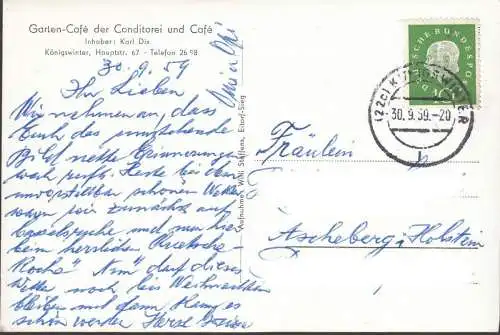 Garten-Café der Conditorei und Café
Inhaber: Karl Dix
Königswinter, Hauptstr. 67 - Telefon 26 98
30. 9. 59
Ihr Lieben
Wir nehmen an, dass
Euch das umstehende
Bild nette Erinnerungen
wach ruft. Heute bei dem
unvorstellbar schönen Wetter
waren wir zunächst auf
und zum hier
beim herrlichen
"Nun" darf dieses
Wetter noch bis Weihnachten
bleiben und dann kann es
schön werden Herzl.
Aufnahme: Willi Steffens, Estorf-Steig
DEUTSCHE BUNDESPOST
10
(22c) KÖNIGSWINTER
30. 9. 59.-20
b
Fräulein
Ascheberg i. Holstein